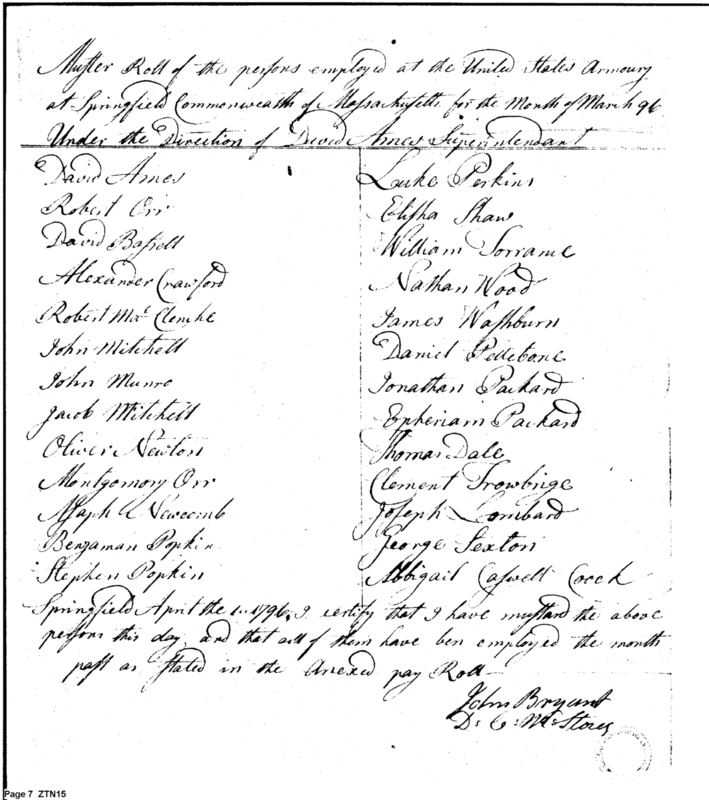 Muster Roll of the persons employed at the United States Armoury
at Springfield Commonwealth of Massachusetts for the Month of March 96
Under the Direction of David Ames Superintendant
David Ames
Robert Orr
David Bassett
Alexander Crawford
Robert Mac Clenche
John Mitchell
John Munro
Jacob Mitchell
Oliver Newton
Montgomory Orr
Asaph Newcomb
Benjaman Popkin
Stephen Popkin
Luke Perkins
Elisha Shaw
William Torrance
Nathan Wood
James Washburn
Daniel Pettebone
Jonathan Packard
Epheriam Packard
Thomas Dale
Clement Trowbrige
Joseph Lombard
George Sexton
Abbigail Caswell Coock
Springfield April the 1. 1796. I certify that I have mustard the above
persons this day and that all of them have ben employed the month
past as stated in the Anexed pay Roll
John Bryant
D: C: Mt: Stores
Page 7 ZTN15